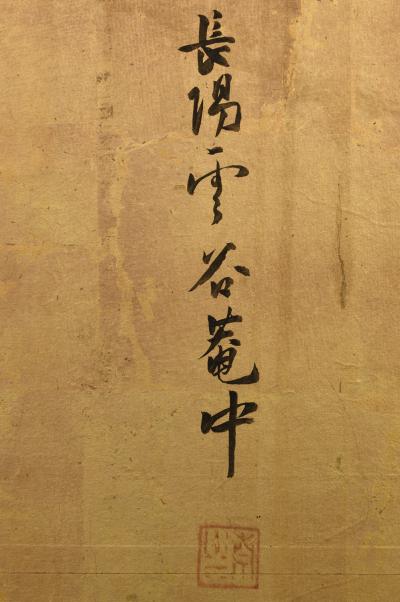 長陽雲谷菴中